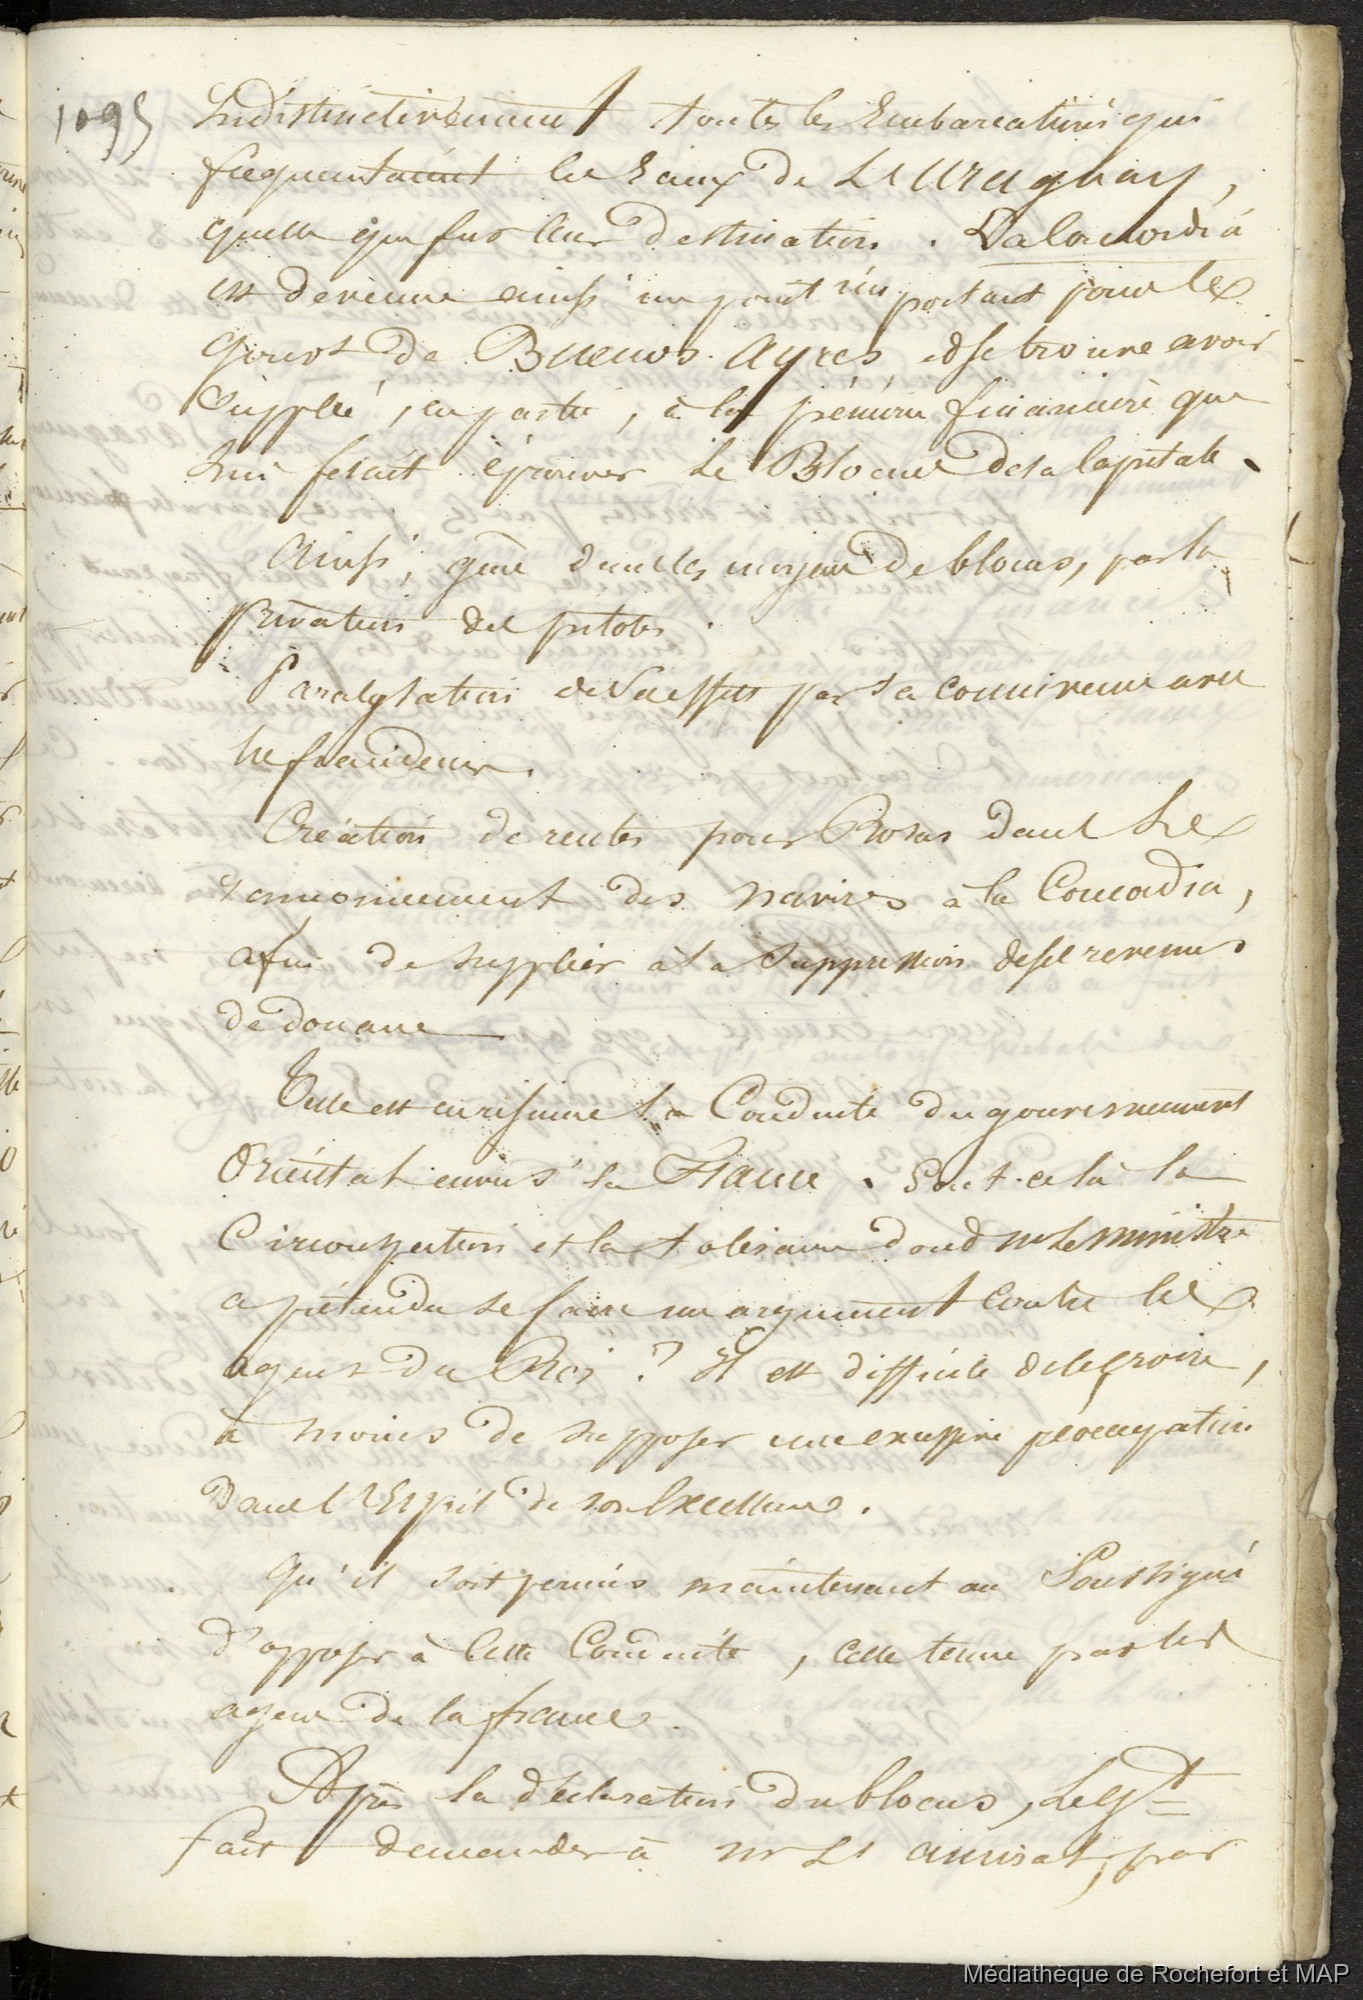 1095
Indistinctivement toutes les Embarcations qui
frequentaient les Eaux de L'Uruguay,
quelle que fut leur destination. La Concordia
est devenue ainsi un point important pour le
Gouvt de Buenos-Ayres, et se trouve avoir
suppléé, en partie, à la pénurie financière que
lui fesait éprouver le Blocus de sa Capitale.
Ainsi, gêne dans les moyens de blocus, par la
privation des pilotes.
Paralysation de ses effets par sa connivence avec
les fraudeurs.
Création de rentes pour Rosas dans le
des navires à la Concordia,
afin de suppléer à la suppression de ses revenus
de douane
Telle est en résumé la Conduite du gouvernement
Oriental envers la France. Sont-ce là la
Circonspection et la tolérance dont Mr le Ministre
a prétendu se faire un argument contre les
agens du Roi? Il est difficile de le croire,
à moins de supposer une excessive préoccupation
dans l'Esprit de son Excellence.
Qu'il soit permis maintenant au Soussigné
d'opposer à cette Conduite, celle tenue par les
agens de la france.
Après la déclaration du blocus, le Gt
fait demander à Mr Le amiral, par
Médiathèque de Rochefort et MAP